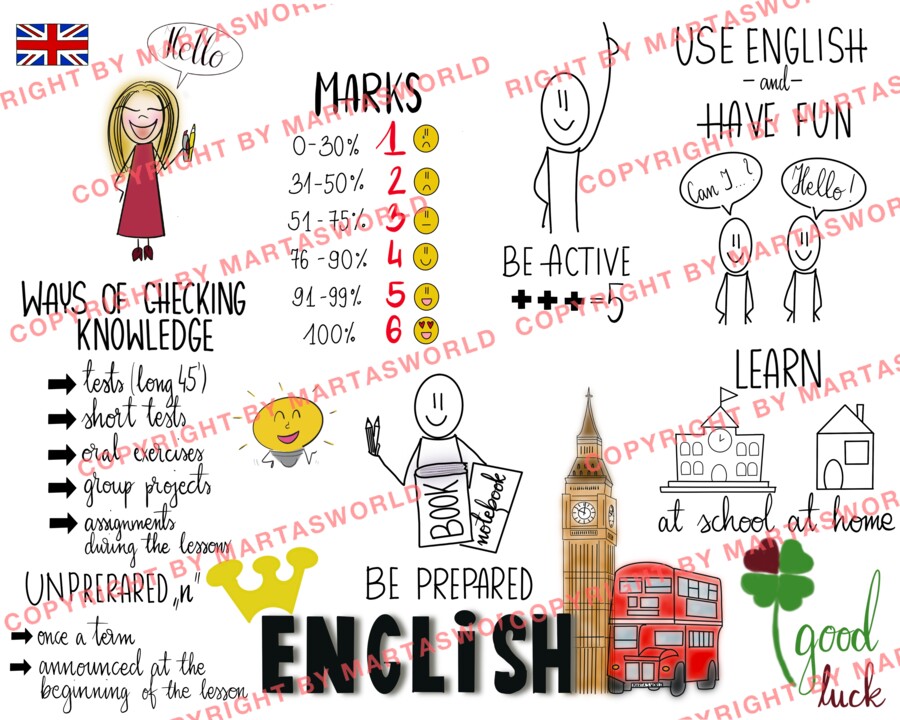 Hello
MARKS
0-30% 1
31-50% 2
51-75% 3
76-90% 4
91-99% 5
100% 6
USE ENGLISH
-and-
HAVE FUN
Can I...?
Hello!
BE ACTIVE
+++=5
WAYS OF CHECKING
KNOWLEDGE
tests (long 45')
short tests
oral exercises
group projects
assignments
during the lessons
BOOK
notebook
BE PREPARED
LEARN
at school at home
UNPREPARED „n"
once a term
announced at the
beginning of the lesson
ENGLiSH
good
luck
COPYRIGHT BY MARTASWORLD